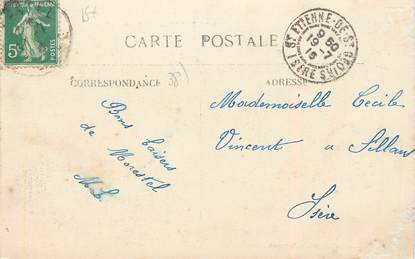 15-
CARTE POSTALE
CORRESPONDANCE
ADRESSE
38
5c
ST ETIENNE-DE-ST GEOIRS
ISÈRE
Bons baisers
de Morestel
Mademoiselle Cécile
Vincent a Sillans
Isère